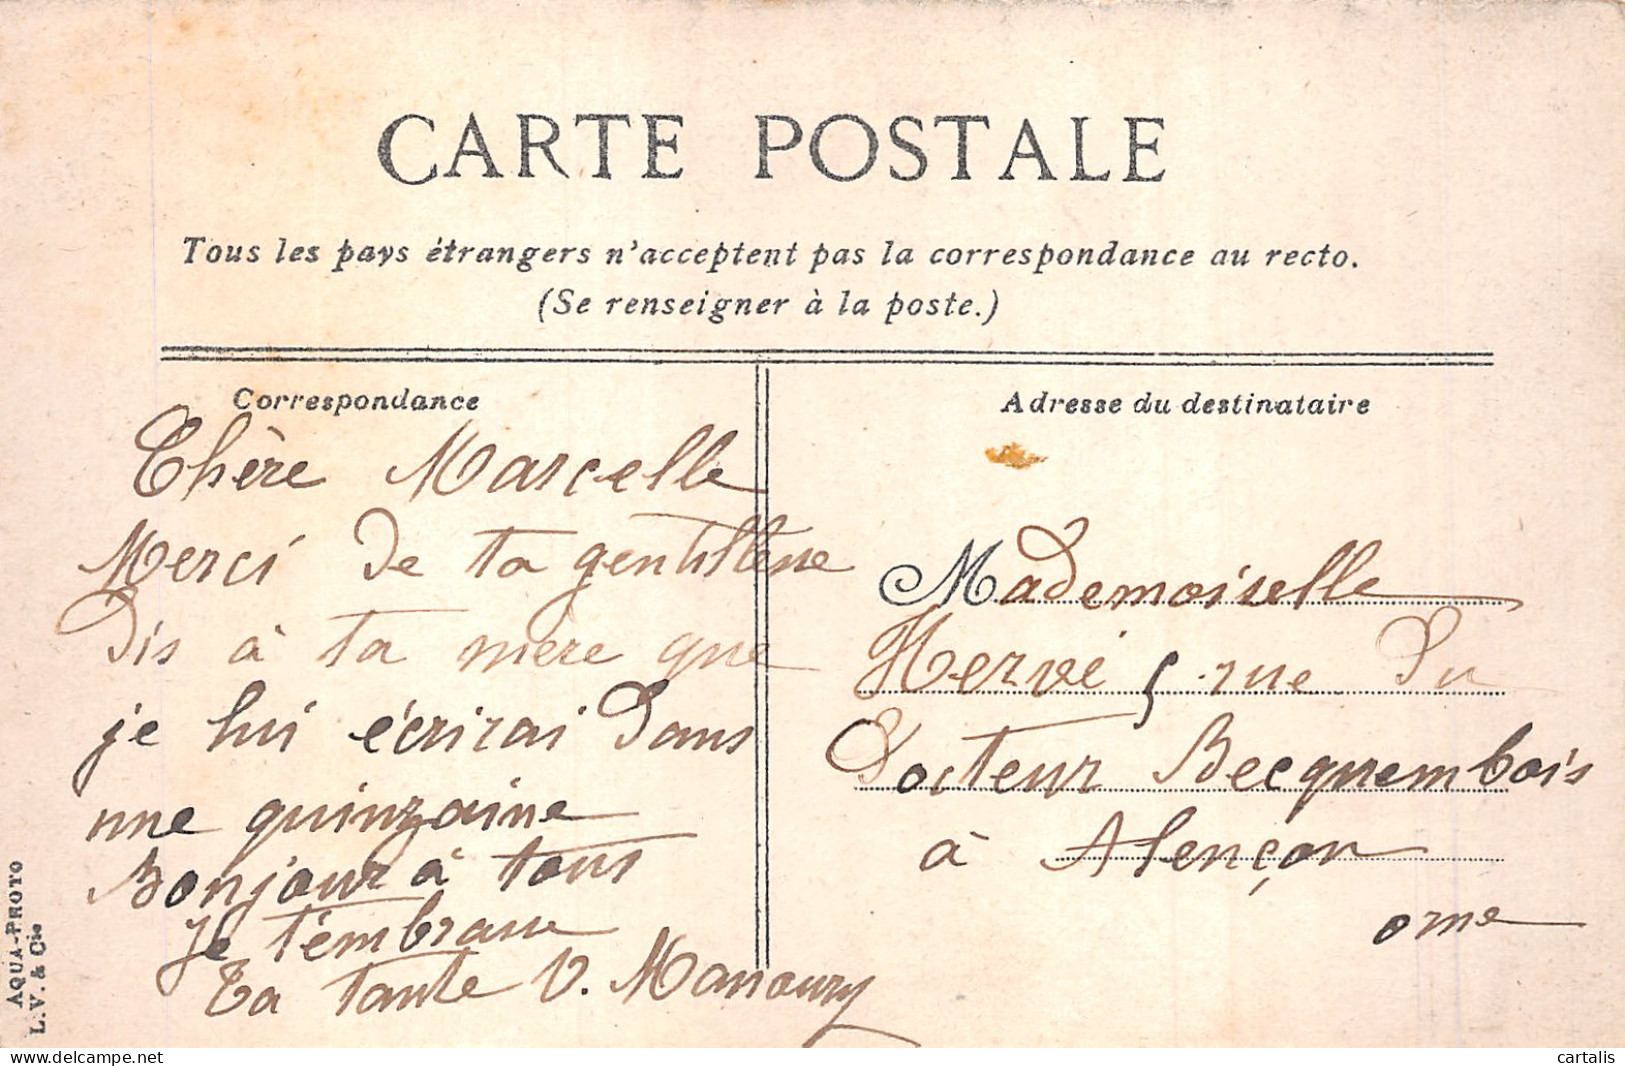 CARTE POSTALE
Tous les pays étrangers n'acceptent pas la correspondance au recto.
(Se renseigner à la poste.)
Correspondance
Chère Marcelle
Merci de ta gentillesse
Dis à ta mère que
je lui écrirai dans
une quinzaine
Bonjour à tous
Je t'embrasse
Ta tante V. Manoury
Adresse du destinataire
Mademoiselle
Hervé 5 rue du
Docteur Becquembois
à Alençon
orne
AQUA-PHOTO
L.V. & Cie
delcampe.net
cartalis